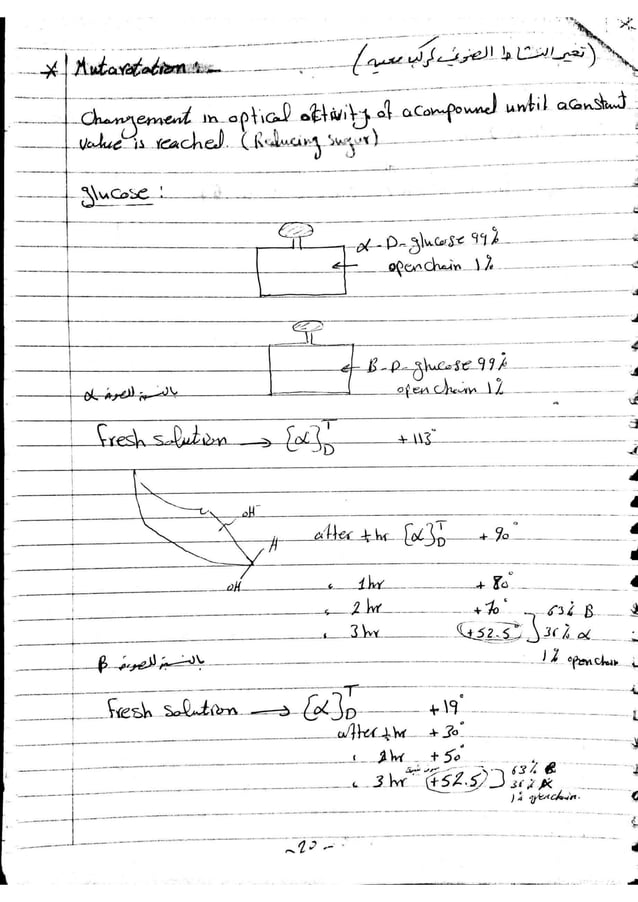 * Mutarotation :-
(تغير النشاط الضوئي لمركب معين)
Changement in optical activity of a compound until a constant
value is reached. (Reducing sugar)
glucose :
α-D-glucose 99%
open chain 1%
B-D-glucose 99%
open chain 1%
بالنسبة للصورة α
Fresh solution → [α]TD +113°
OH
H
OH
after hr [α]TD +90°
1hr +80°
2hr +70° 63% B
3hr +52.5° 36% α
1% open chain
بالنسبة للصورة B
Fresh solution → [α]TD +19°
after hr +30°
2hr +50°
3hr +52.5 63% B
36% α
1% open chain.
-20-